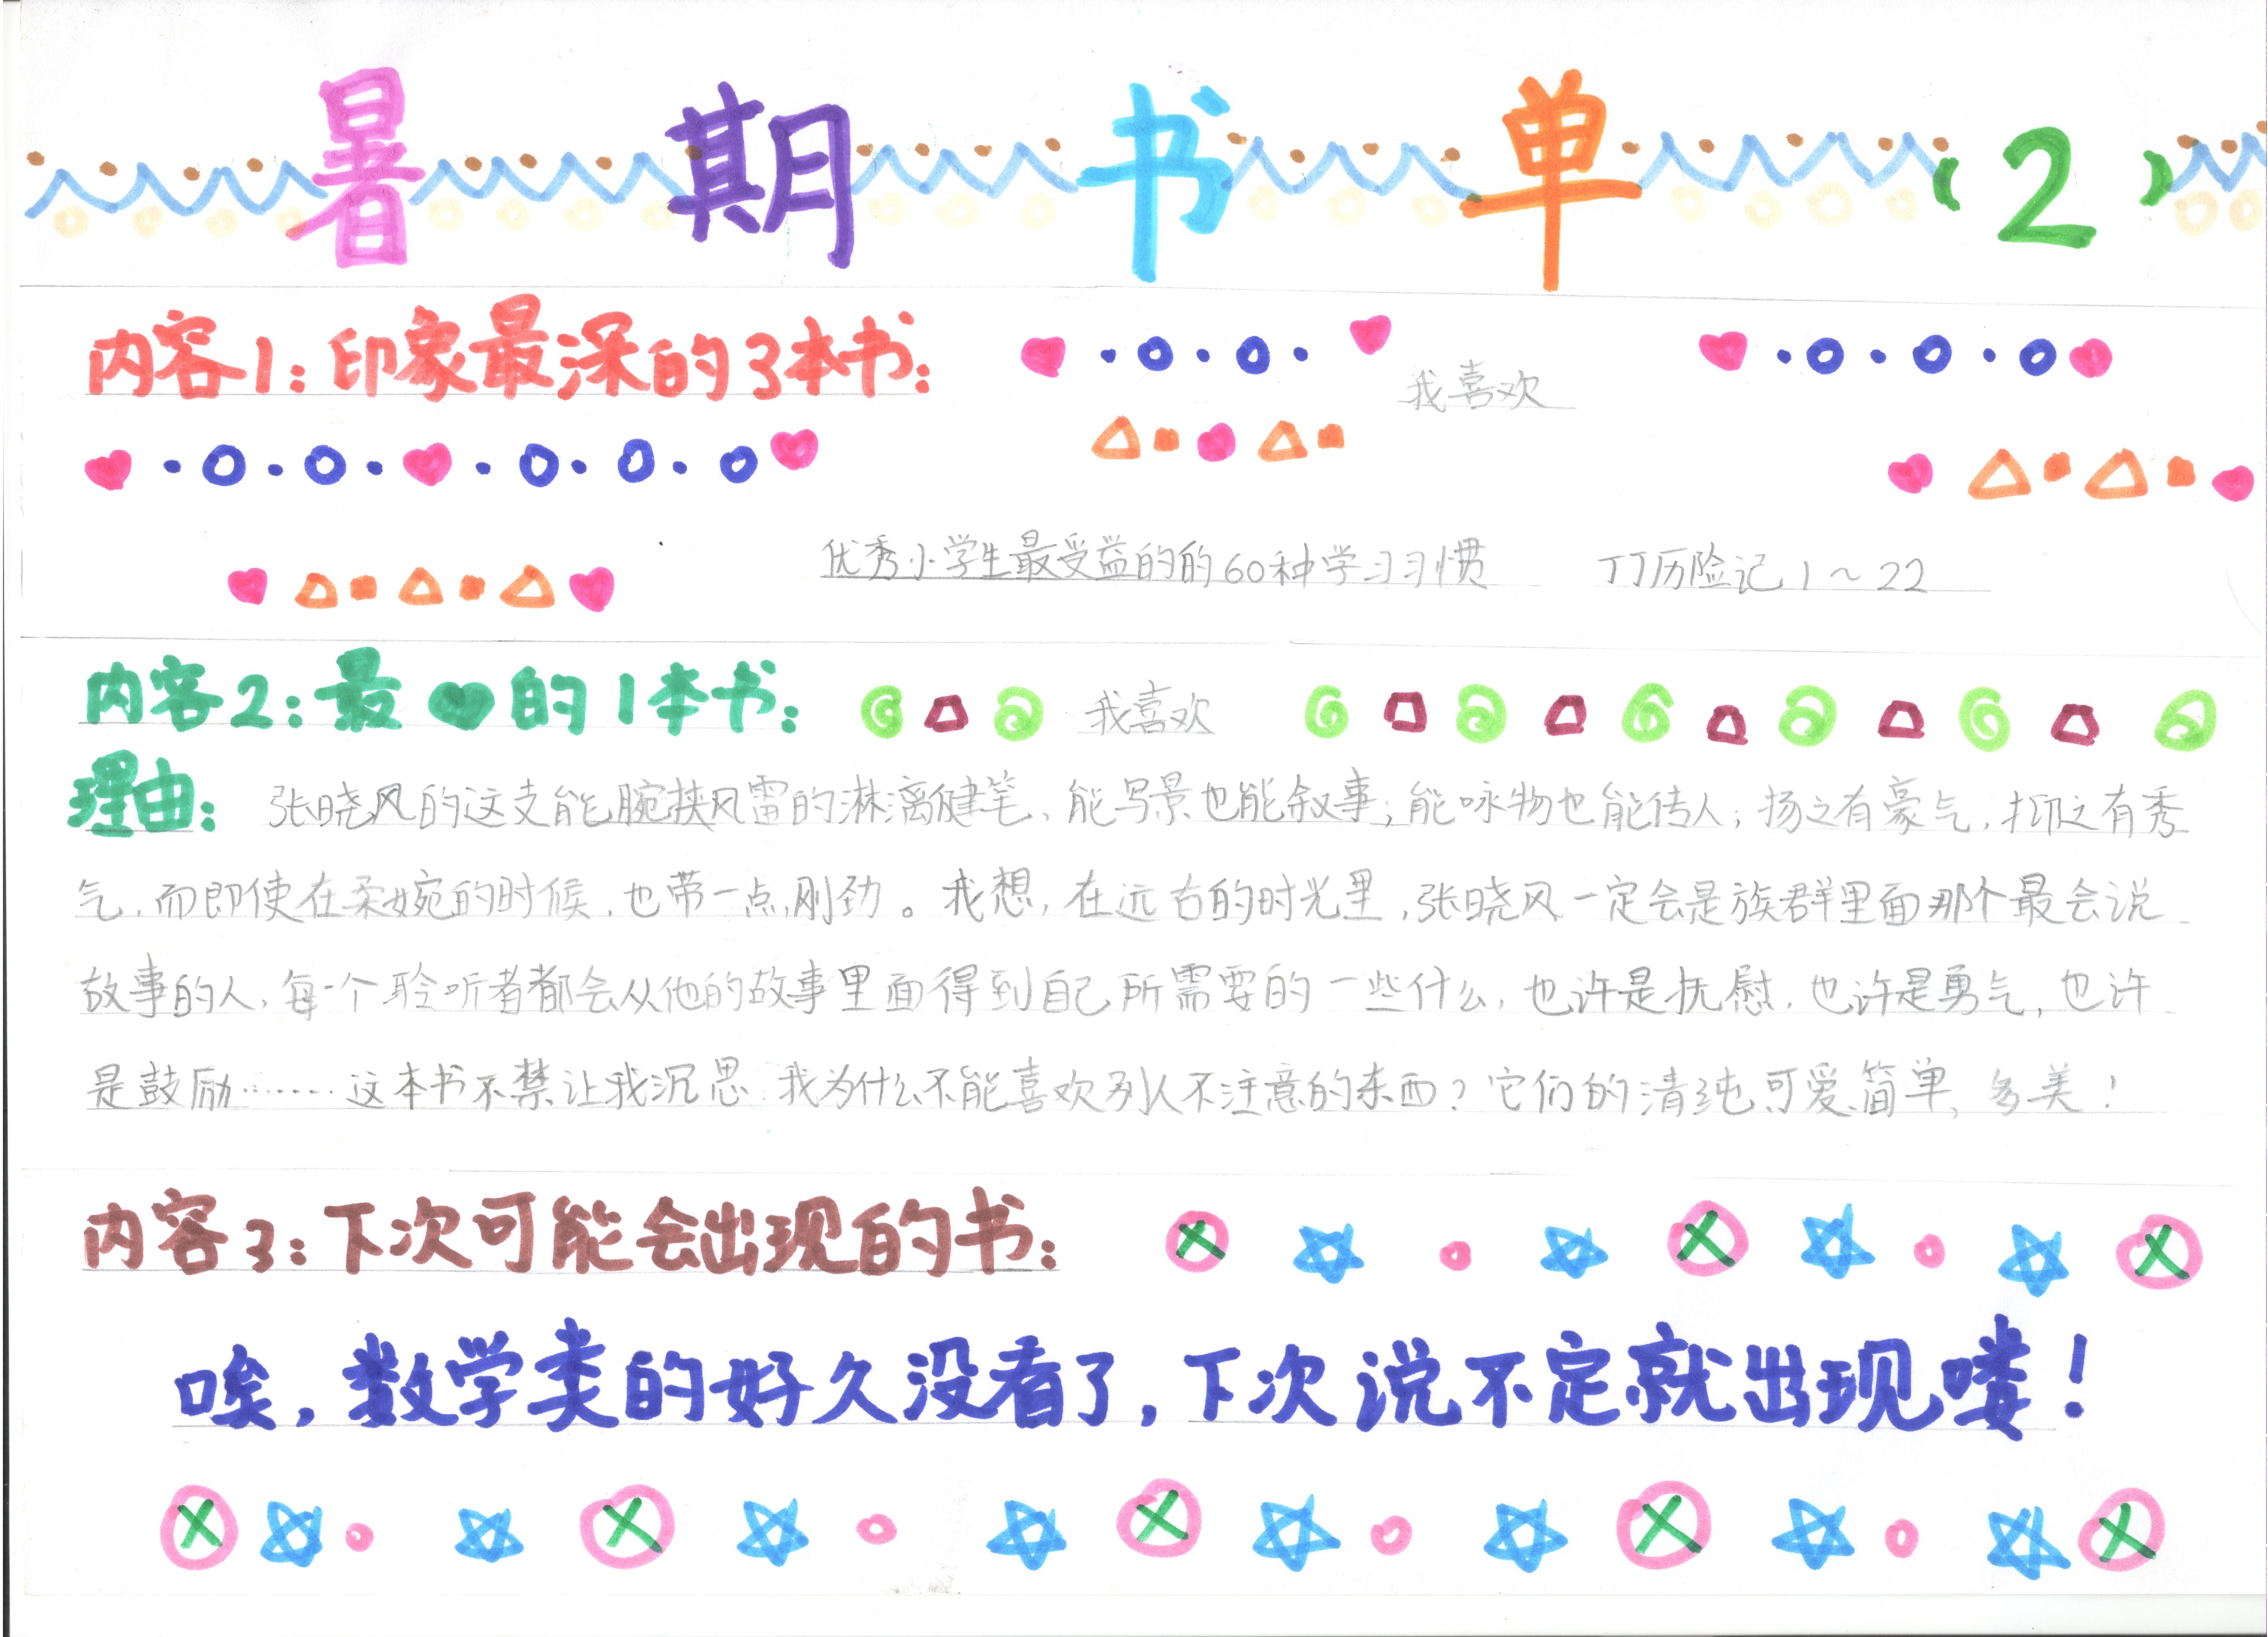 暑期书单(2)
内容1:印象最深的3本书:
我喜欢
优秀小学生最受益的的60种学习习惯 丁丁历险记1~22
内容2:最♥的1本书: 我喜欢
理由: 张晓风的这支能腕挟风雷的淋漓健笔、能写景也能叙事;能咏物也能传人;扬之有豪气,抑之有秀
气,而即使在柔婉的时候,也带一点刚劲。我想,在远古的时光里,张晓风一定会是族群里面那个最会说
故事的人,每一个聆听者都会从他的故事里面得到自己所需要的一些什么,也许是抚慰,也许是勇气,也许
是鼓励……这本书不禁让我沉思:我为什么不能喜欢别人不注意的东西?它们的清纯、可爱、简单,多美!
内容3:下次可能会出现的书:
唉,数学类的好久没看了,下次说不定就出现喽!